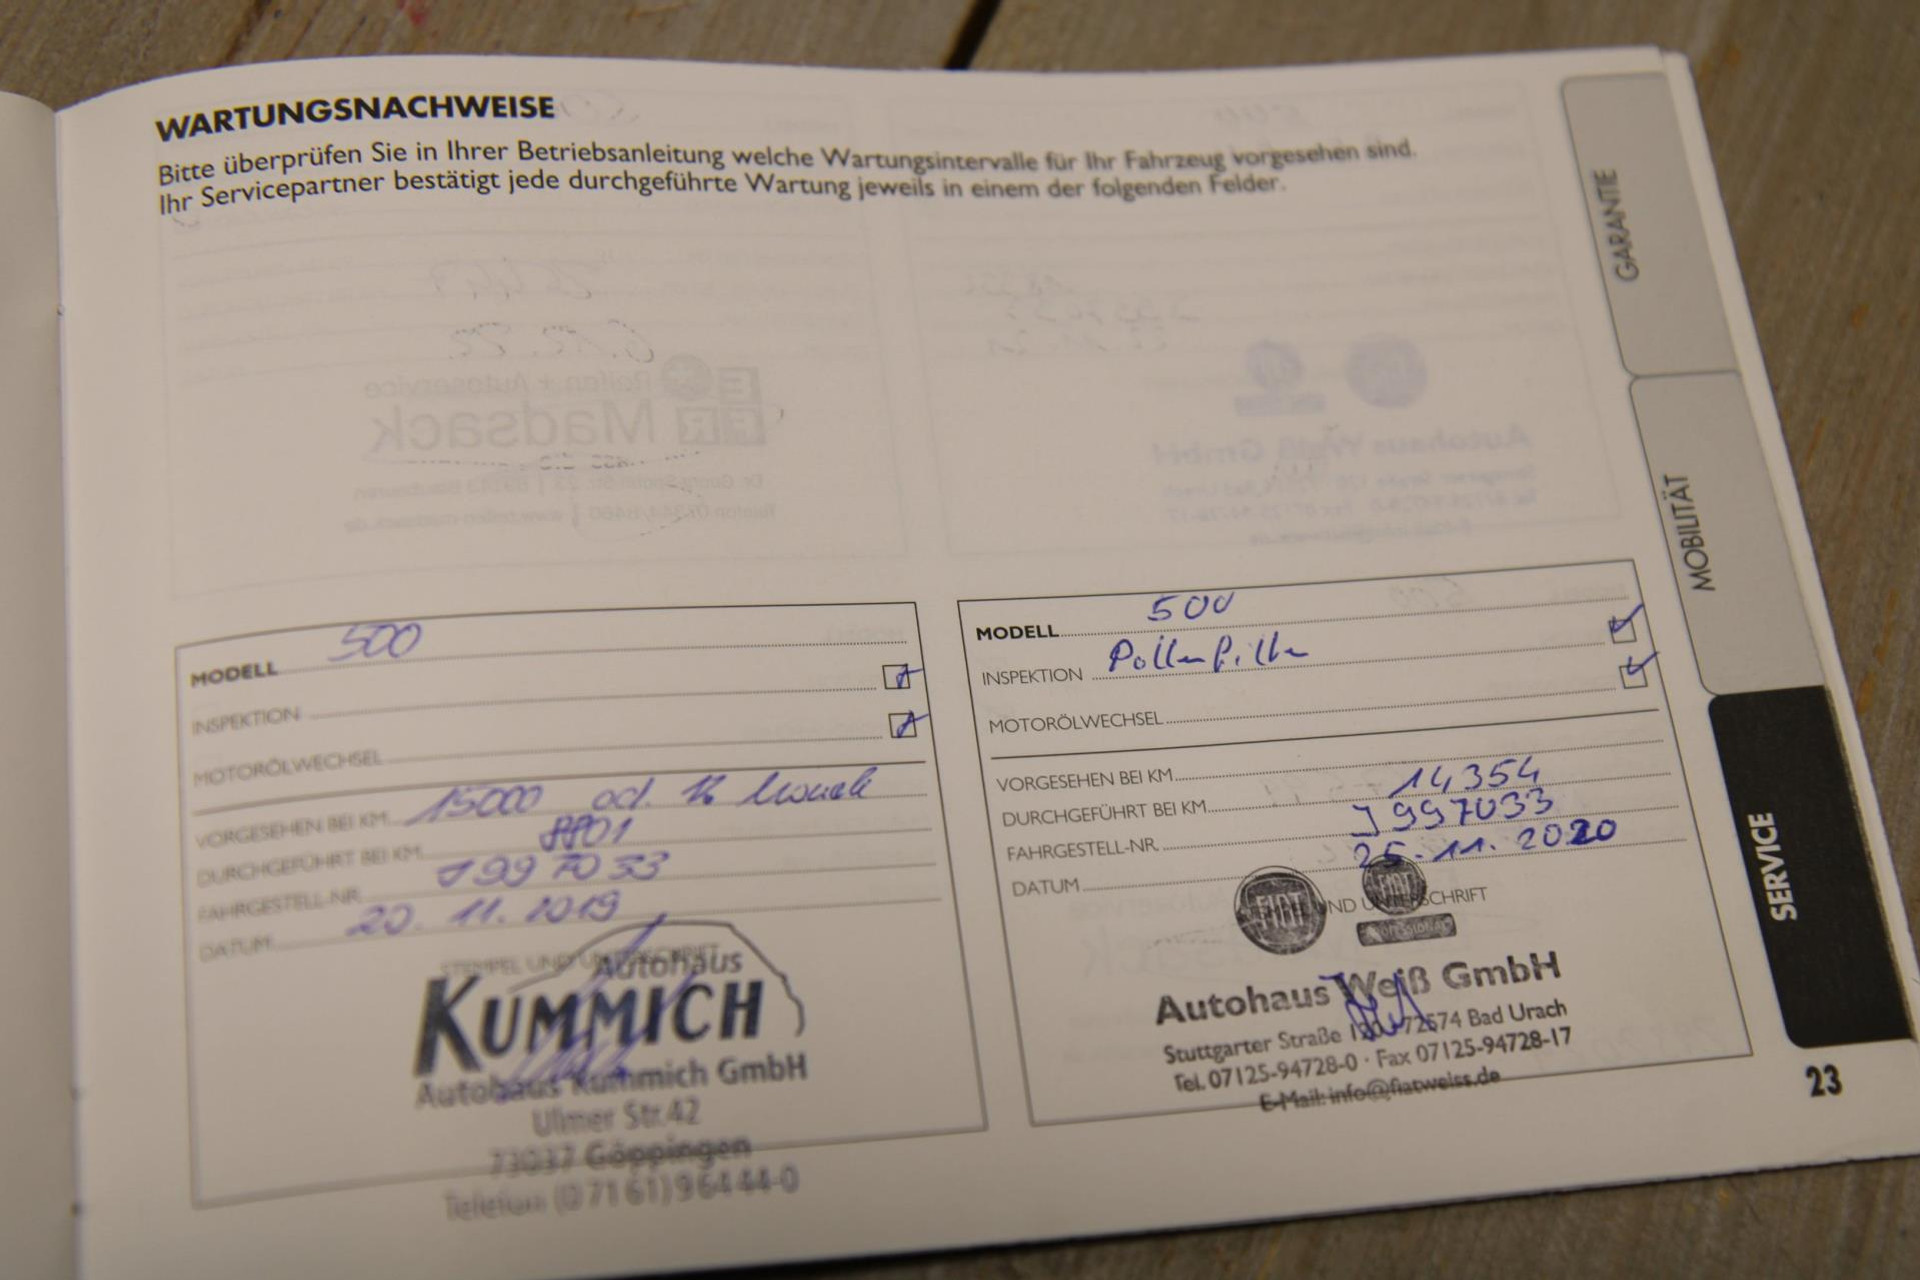 WARTUNGSNACHWEISE
Bitte überprüfen Sie in Ihrer Betriebsanleitung welche Wartungsintervalle für Ihr Fahrzeug vorgesehen sind.
Ihr Servicepartner bestätigt jede durchgeführte Wartung jeweils in einem der folgenden Felder.
MODELL 500
INSPEKTION
MOTORÖLWECHSEL
VORGESEHEN BEI KM 15000 od. 12 Monate
DURCHGEFÜHRT BEI KM
FAHRGESTELL-NR. J997033
DATUM 20.11.2019
STEMPEL UND UNTERSCHRIFT
Autohaus
KUMMICH
Autohaus Kummich GmbH
Ulmer Str.42
73037 Göppingen
Telefon (07161)96444-0
MODELL 500
INSPEKTION Pollenfilter
MOTORÖLWECHSEL
VORGESEHEN BEI KM
DURCHGEFÜHRT BEI KM 14354
FAHRGESTELL-NR. J997033
DATUM 25.11.2020
UND UNTERSCHRIFT
FIAT FIAT
PROFESSIONAL
Autohaus Weiß GmbH
Stuttgarter Straße 72574 Bad Urach
Tel. 07125-94728-0 · Fax 07125-94728-17
E-Mail: info@fiatweiss.de
GARANTIE
MOBILITÄT
SERVICE
23